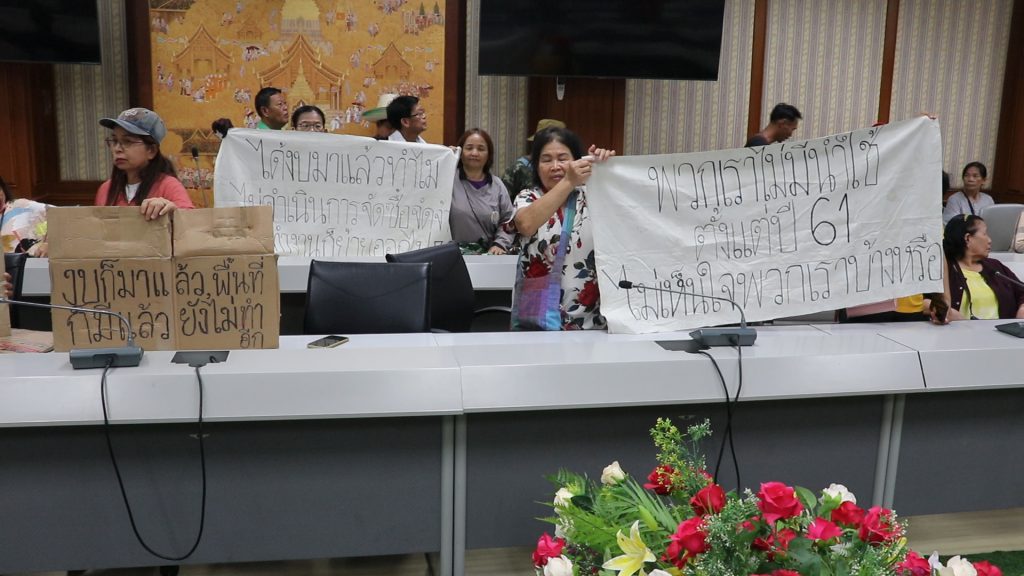 งบก็มาแล้ว พื้นที่
ก็มีแล้ว ยังไม่ทำ
อีก
ได้งบมาแล้วทำไม
ไม่ดำเนินการจัดซื้อจัดจ้
พวกเราไม่มีน้ำใช้
ตั้งแต่ปี 61
ไม่เห็นใจพวกเราบ้างหรือ